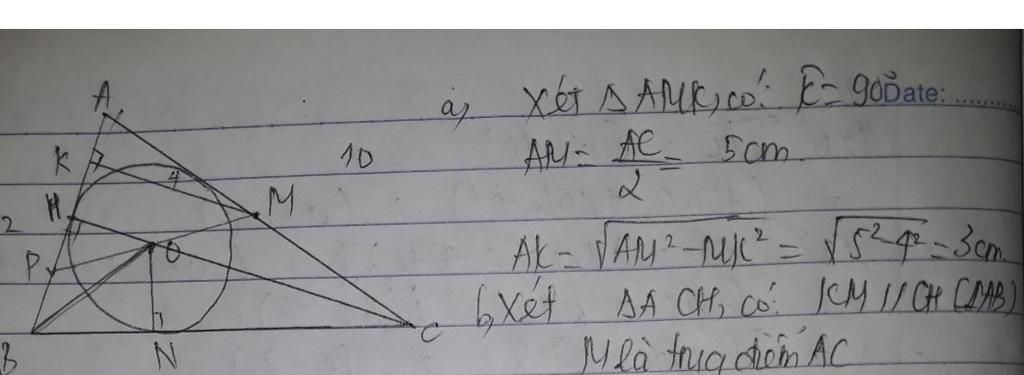 A
K
10
4
H
M
2
P
O
B
N
C
a, Xét Δ AMK, có: K̂ = 90° Date: ............
AM = AC/2 = 5cm
AK = √(AM² - MK²) = √(5² - 4²) = 3cm
b, Xét Δ ACH, có: KM // CH (⊥AB)
M là trug điểm AC